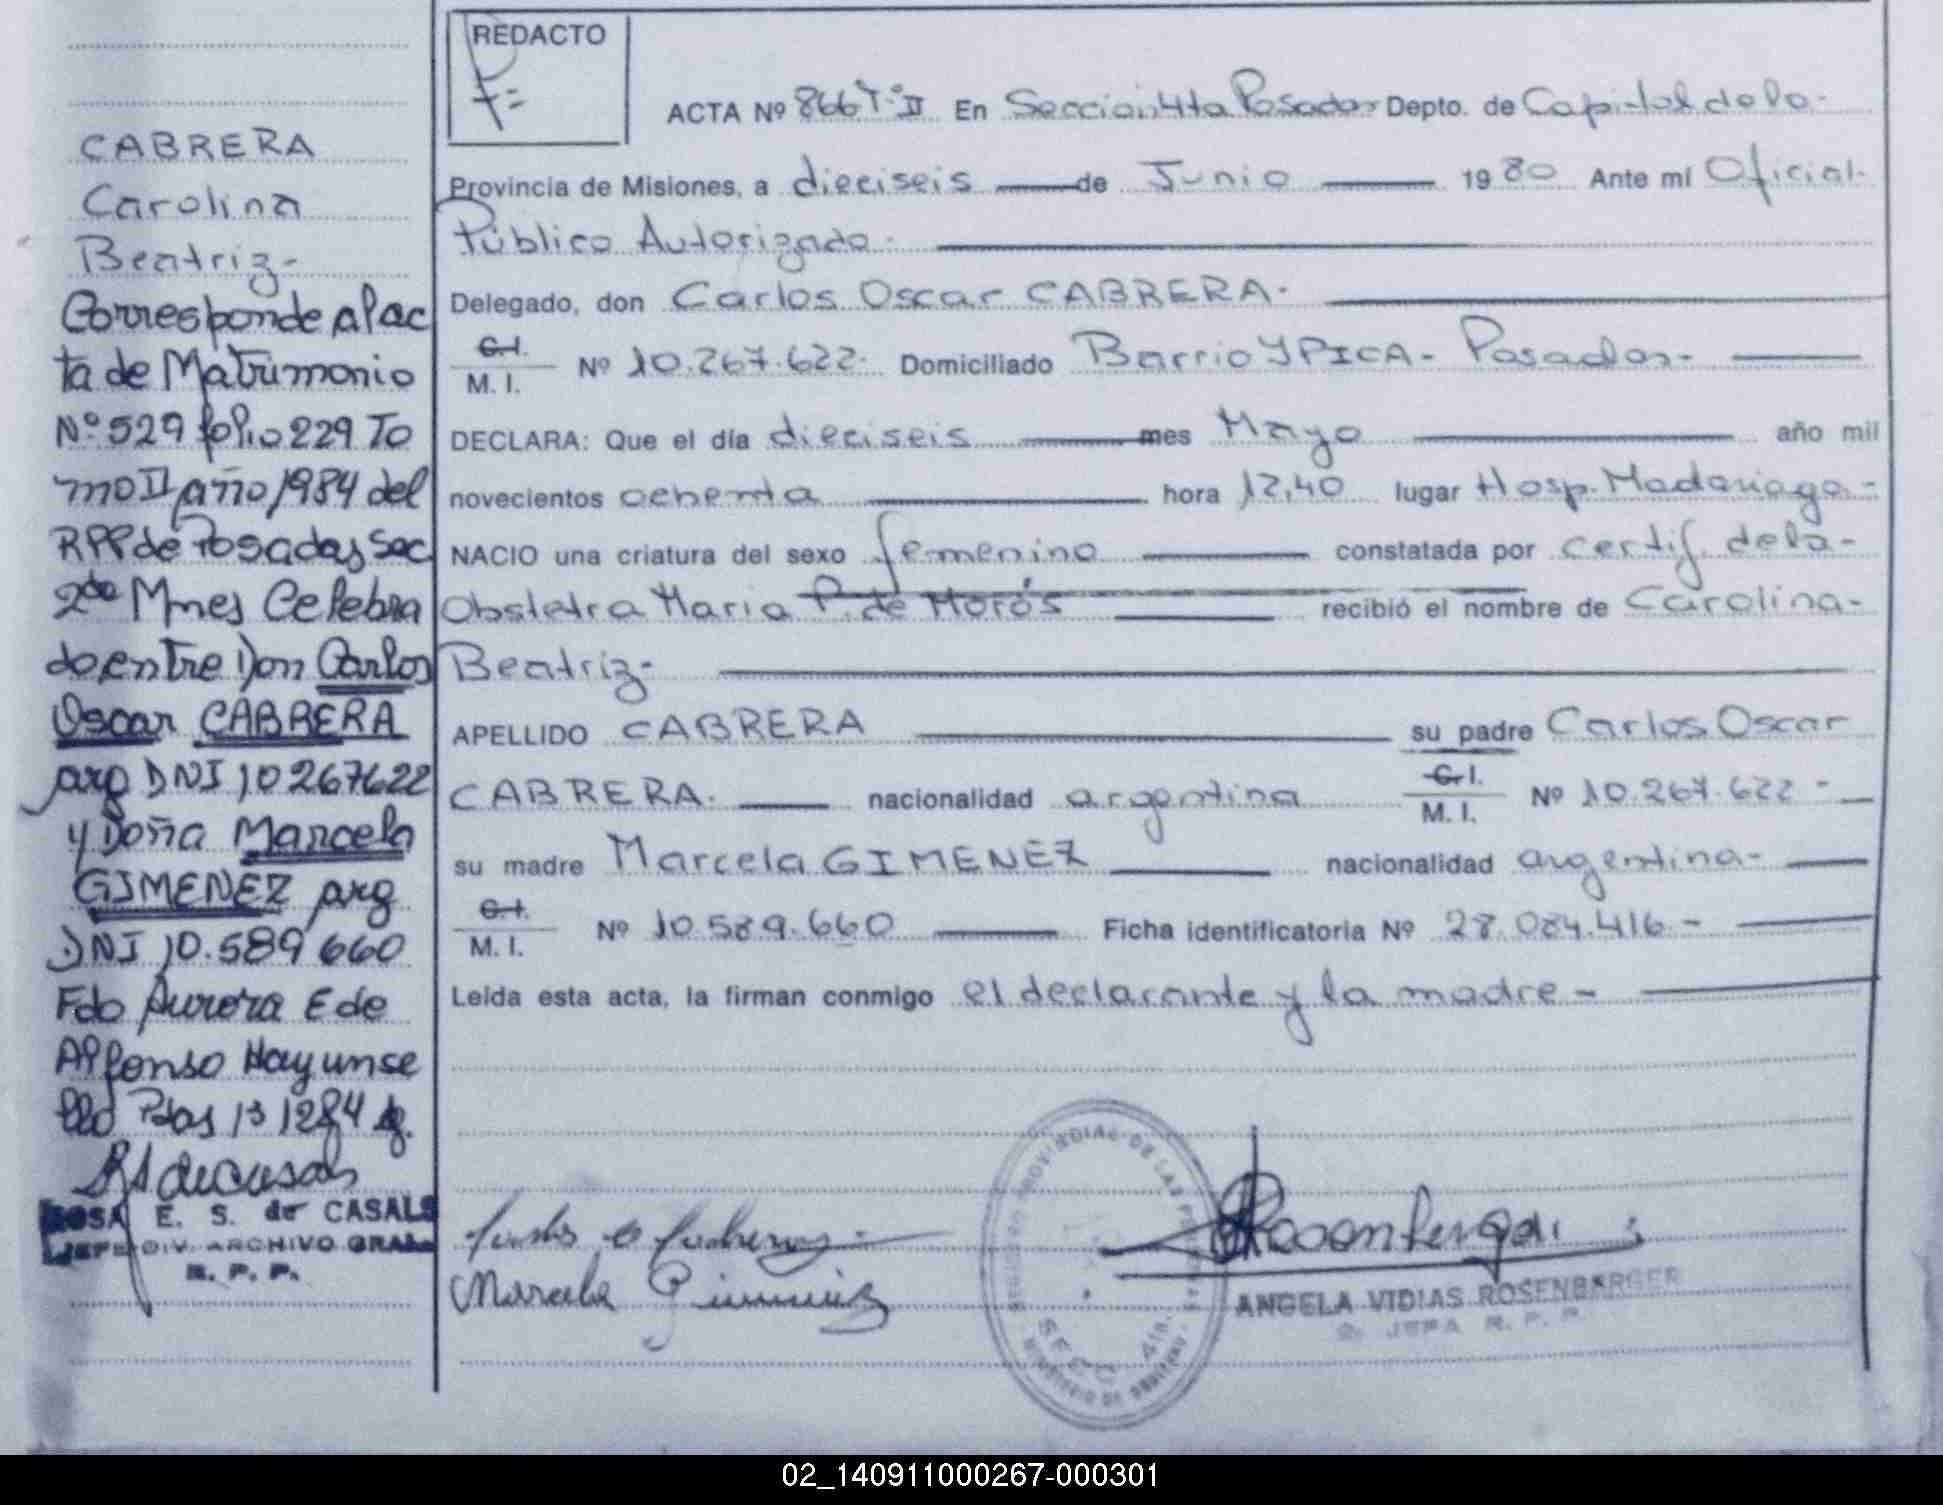 CABRERA
Carolina
Beatriz-
Corresponde al ac
ta de Matrimonio
Nº 529 folio 229 To
mo II año 1984 del
RPP de Posadas Sec
2da Mnes Celebra
do entre Don Carlos
Oscar CABRERA
arg DNI 10267622
y Doña Marcela
GIMENEZ arg
DNI 10.589660
Fdo Aurora E de
Alfonso Hay un se
llo Pdas 13 12 84
ROSA E. S. de CASALS
JEFE DIV. ARCHIVO GRAL
R. P. P.
REDACTO
ACTA Nº 866 Tº II En Seccion 4ta Posadas Depto. de Capital de la-
Provincia de Misiones, a dieciseis de Junio 1980 Ante mí Oficial-
Público Autorizado-
Delegado, don Carlos Oscar CABRERA-
C.I.
M. I. Nº 10.267.622- Domiciliado Barrio YPICA- Posadas-
DECLARA: Que el día dieciseis mes Mayo año mil
novecientos ochenta hora 12,40 lugar Hosp. Madariaga-
NACIO una criatura del sexo femenino constatada por certif. de la-
Obstetra Maria P. de Morós recibió el nombre de Carolina-
Beatriz-
APELLIDO CABRERA su padre Carlos Oscar
CABRERA- nacionalidad argentina C.I. M. I. Nº 10.267.622-
su madre Marcela GIMENEZ nacionalidad argentina-
C.I.
M. I. Nº 10.589.660 Ficha identificatoria Nº 28.084.416-
Leída esta acta, la firman conmigo el declarante y la madre-
Marcela Gimenez
REGISTRO PROVINCIAL DE LAS PERSONAS
SECC. 4ta.
MINISTERIO DE GOBIERNO
ANGELA VIDIAS ROSENBARGER
JEFA R. P. P.
02_140911000267-000301